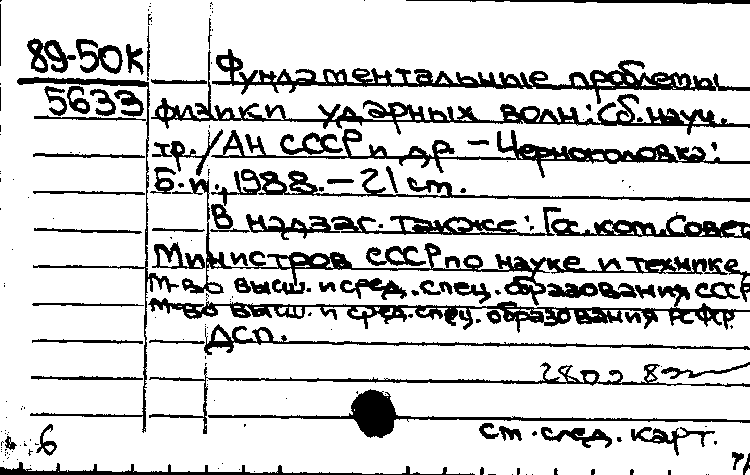 89-50К Фундаментальные проблемы
5633 физики ударных волн: Сб. науч.
тр. / АН СССР и др. - Черноголовка:
Б. и., 1988. - 21 см.
В надзаг. также: Гос. ком. Совет
Министров СССР по науке и технике,
М-во высш. и сред. спец. образования СССР
М-во высш. и сред. спец. образования РСФСР.
ДСП.
см. след. карт.
6